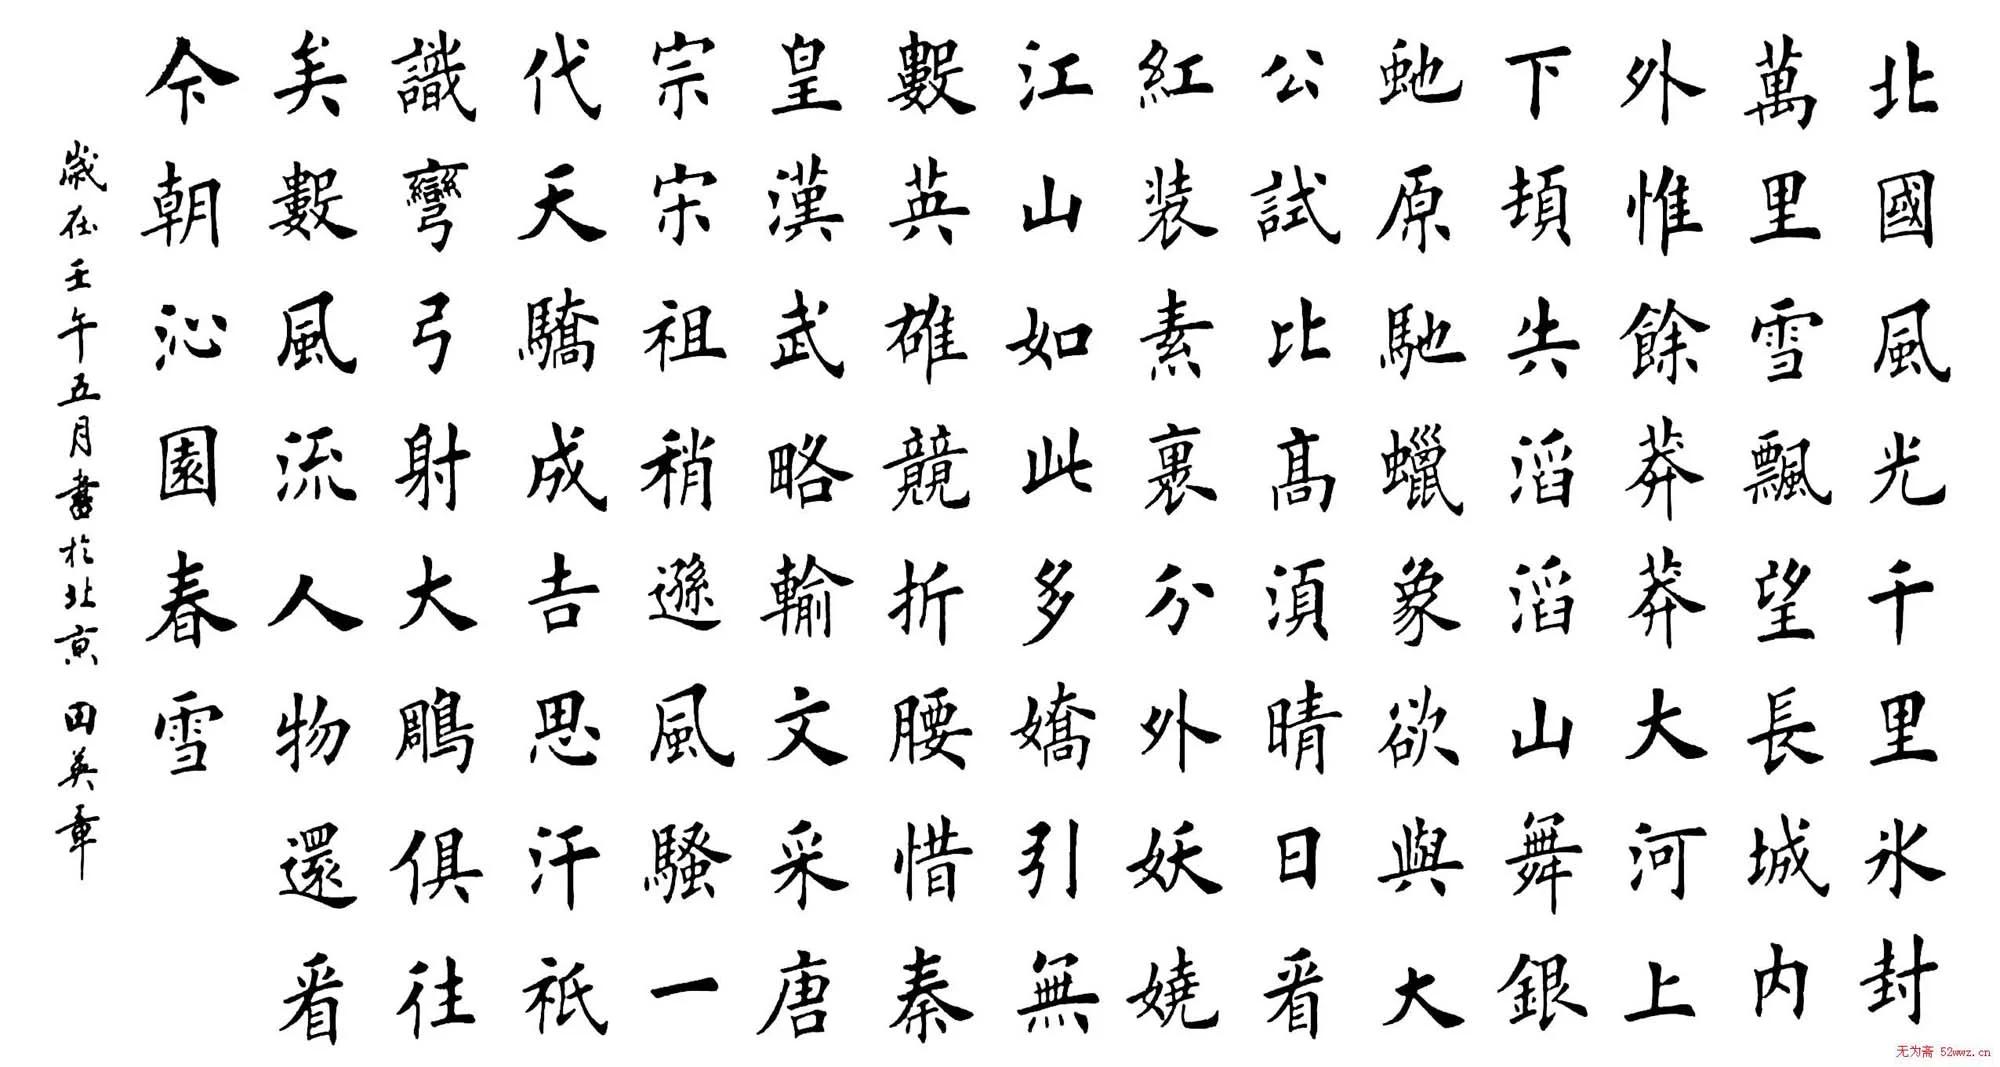 北國風光千里氷封
萬里雪飄望長城内
外惟餘莽莽大河上
下頓失滔滔山舞銀
虵原馳蠟象欲與大
公試比髙須晴日看
紅裝素裹分外妖嬈
江山如此多嬌引無
數英雄競折腰惜秦
皇漢武略輸文采唐
宗宋祖稍遜風騷一
代天驕成吉思汗祇
識彎弓射大鵰俱往
矣數風流人物還看
今朝沁園春雪
歲在壬午五月書於北京 田英章
无为斋 52wwz.cn